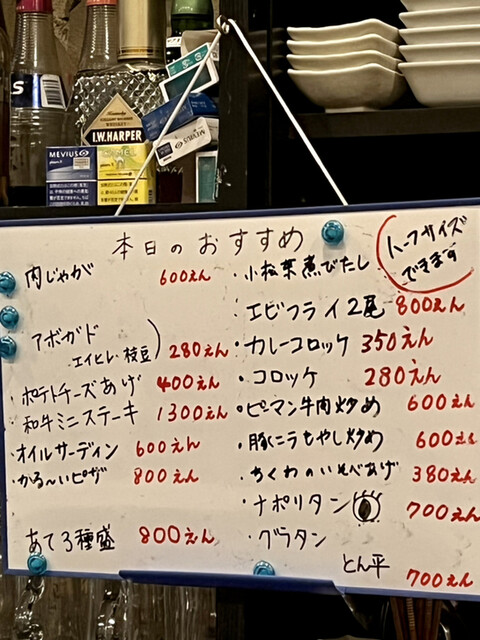 I.W.HARPER
MEVIUS
CAMEL
MEVIUS
S
本日のおすすめ
ハーフサイズ
できます
肉じゃが 600えん
アボガド
エイヒレ・枝豆 280えん
・ポテトチーズあげ 400えん
・和牛ミニステーキ 1300えん
・オイルサーディン 600えん
・かる〜いピザ 800えん
・
あて3種盛 800えん
・小松菜煮びたし
エビフライ2尾 800えん
・カレーコロッケ 350えん
・コロッケ 280えん
・ピーマン牛肉炒め 600えん
・豚ニラもやし炒め 600えん
・ちくわのいそべあげ 380えん
・ナポリタン 700えん
・グラタン
とん平 700えん